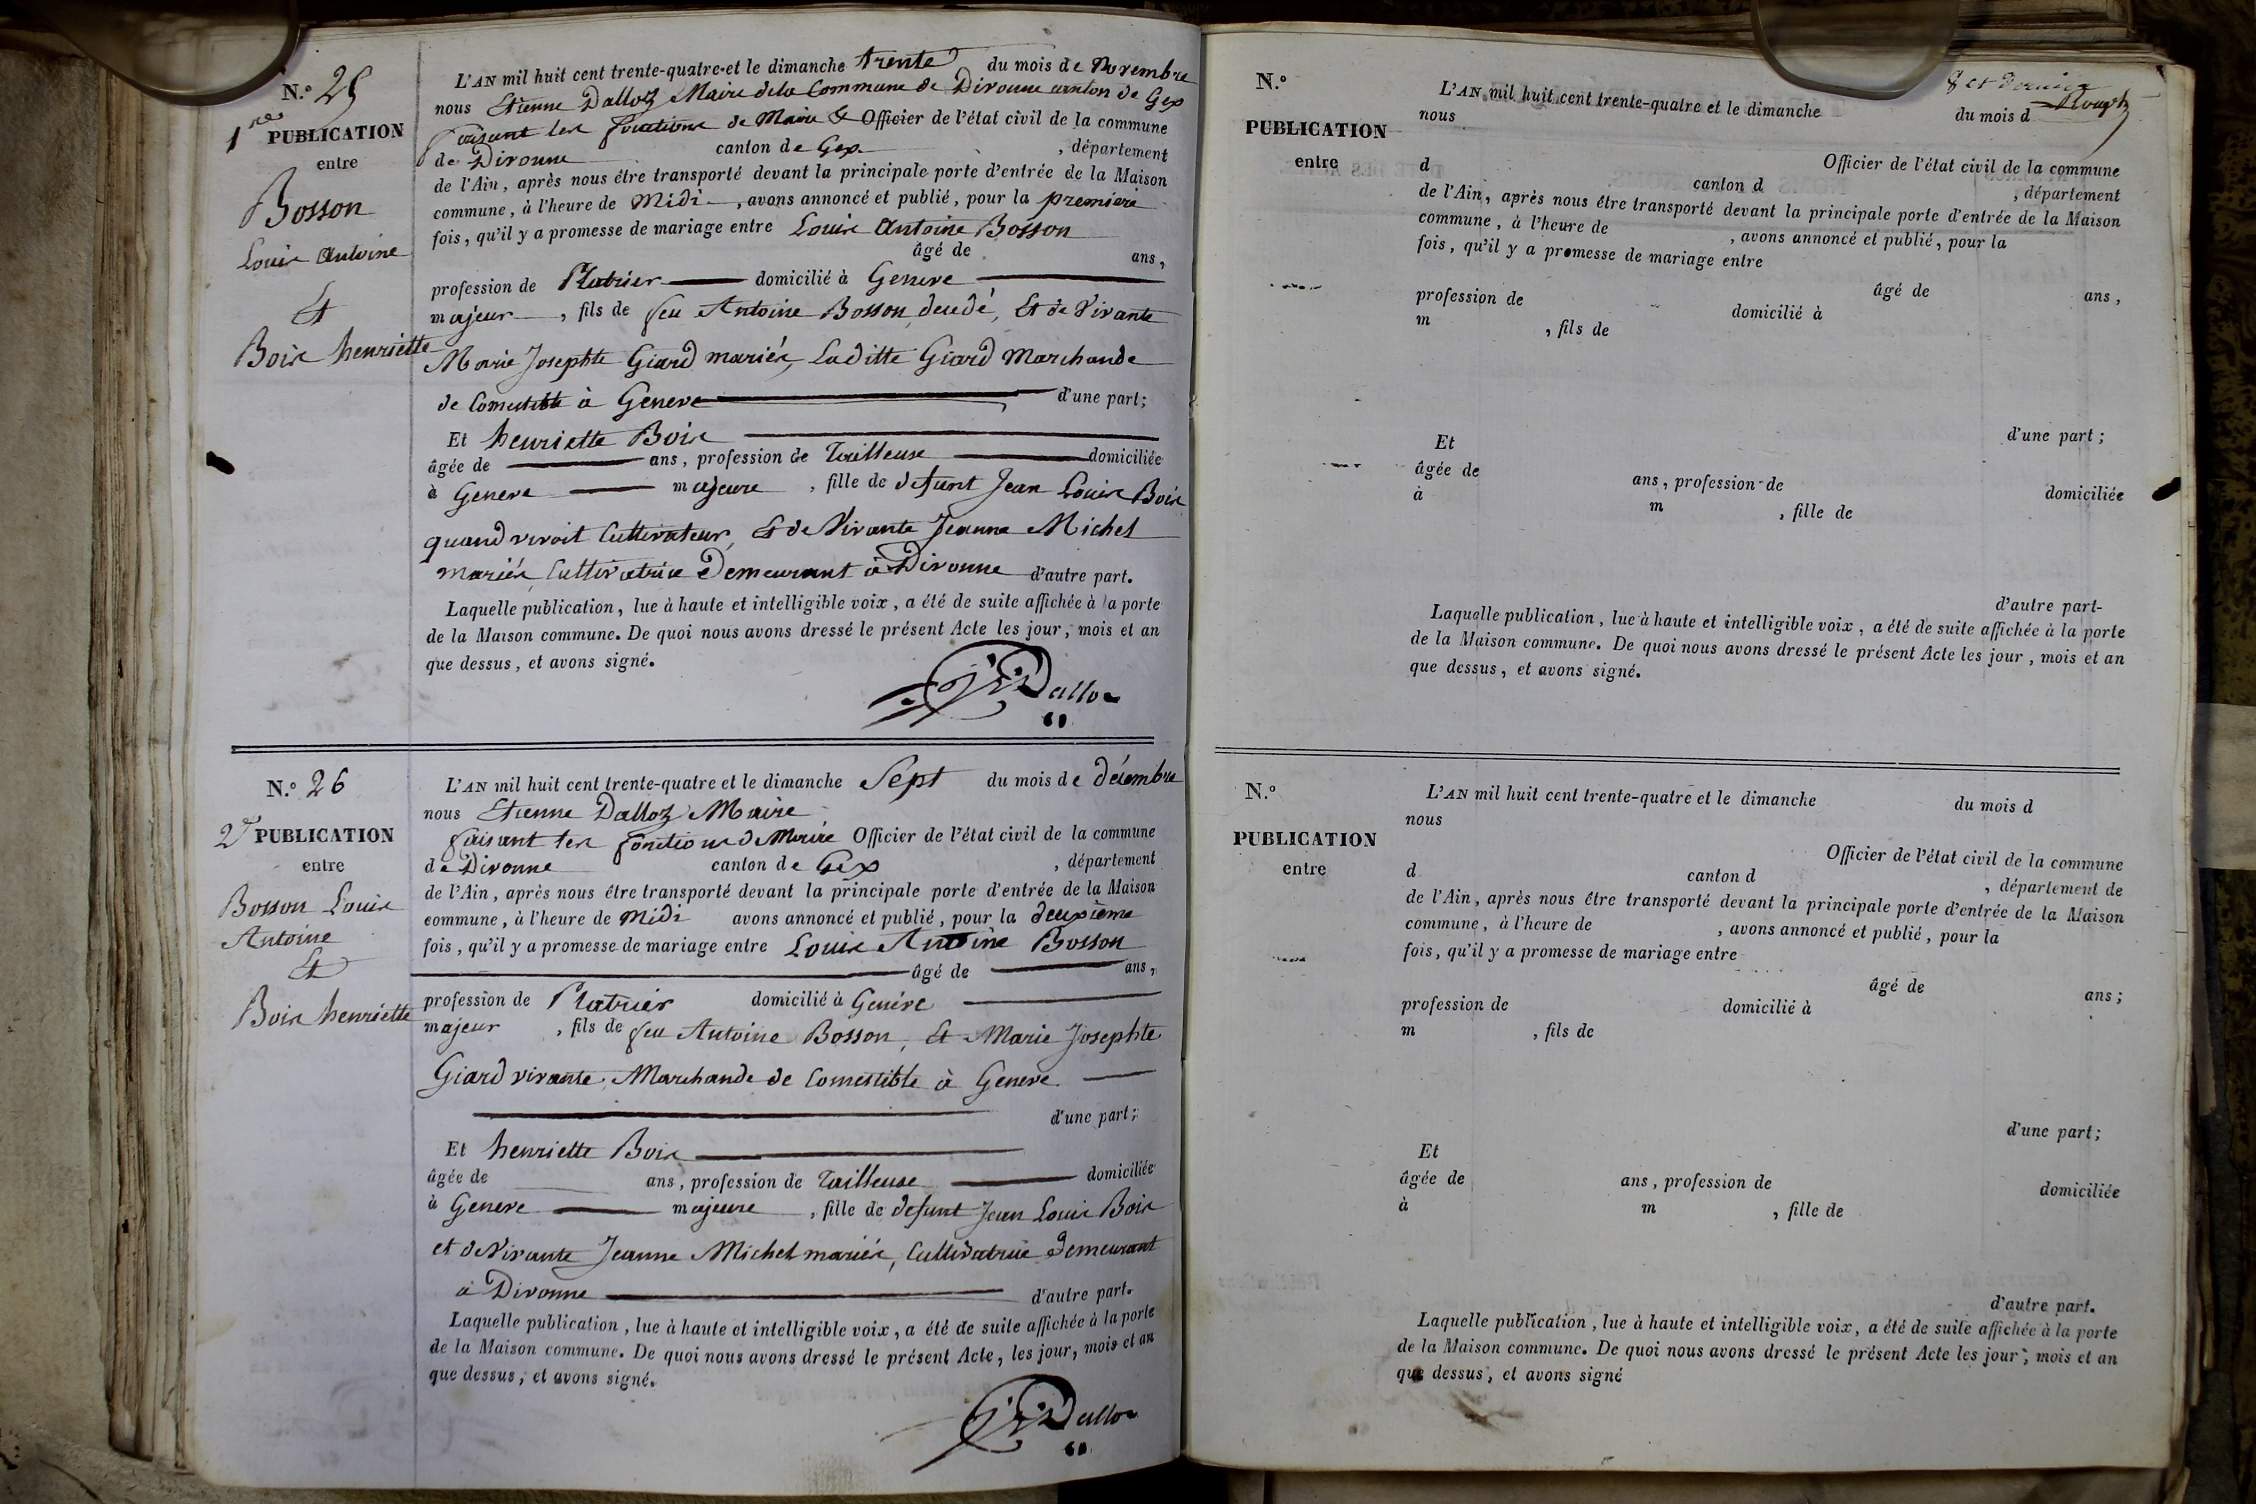 N.° 25
1re PUBLICATION
entre
Bosson
Louis Antoine
Et
Bois henriette
L'AN mil huit cent trente-quatre et le dimanche trente du mois de Novembre
nous Etienne Dalloz Maire de la Commune de Divonne canton de Gex
faisant les fonctions de Maire & Officier de l'état civil de la commune
de Divonne canton de Gex , département
de l'Ain, après nous être transporté devant la principale porte d'entrée de la Maison
commune, à l'heure de Midi , avons annoncé et publié, pour la premiere
fois, qu'il y a promesse de mariage entre Louis Antoine Bosson
âgé de ans,
profession de Platrier domicilié à Geneve
majeur , fils de feu Antoine Bosson, decedé, Et de Vivante
Marie Josephte Giard mariés, Laditte Giard Marchande
de Comestible à Geneve d'une part;
Et henriette Bois
âgée de ans, profession de Tailleuse domiciliée
à Geneve majeure , fille de defunt Jean Louis Bois
quand vivoit Cultivateur, Et de Vivante Jeanne Michel
mariés, Cultivatrice Demeurant à Divonne d'autre part.
Laquelle publication, lue à haute et intelligible voix, a été de suite affichée à la porte
de la Maison commune. De quoi nous avons dressé le présent Acte les jour, mois et an
que dessus, et avons signé.
Dalloz
N.° 26
2e PUBLICATION
entre
Bosson Louis
Antoine
Et
Bois henriette
L'AN mil huit cent trente-quatre et le dimanche Sept du mois de décembre
nous Etienne Dalloz Maire
faisant les fonctions de Maire Officier de l'état civil de la commune
de Divonne canton de Gex , département
de l'Ain, après nous être transporté devant la principale porte d'entrée de la Maison
commune, à l'heure de Midi avons annoncé et publié, pour la deuxième
fois, qu'il y a promesse de mariage entre Louis Antoine Bosson
âgé de ans,
profession de Platrier domicilié à Genève
majeur , fils de feu Antoine Bosson, Et Marie Josephte
Giard vivante, Marchande de Comestible à Geneve
d'une part;
Et henriette Bois
âgée de ans, profession de Tailleuse domiciliée
à Geneve majeure , fille de defunt Jean Louis Bois
et de Vivante Jeanne Michel mariés, Cultivatrice Demeurant
à Divonne d'autre part.
Laquelle publication, lue à haute et intelligible voix, a été de suite affichée à la porte
de la Maison commune. De quoi nous avons dressé le présent Acte, les jour, mois et an
que dessus, et avons signé.
Dalloz
et dernier
N.°
PUBLICATION
entre
L'AN mil huit cent trente-quatre et le dimanche du mois d
nous
Officier de l'état civil de la commune
d canton d , département
de l'Ain, après nous être transporté devant la principale porte d'entrée de la Maison
commune, à l'heure de , avons annoncé et publié, pour la
fois, qu'il y a promesse de mariage entre
âgé de ans,
profession de domicilié à
m , fils de
d'une part;
Et
âgée de ans, profession de domiciliée
à m , fille de
d'autre part-
Laquelle publication, lue à haute et intelligible voix, a été de suite affichée à la porte
de la Maison commune. De quoi nous avons dressé le présent Acte les jour, mois et an
que dessus, et avons signé.
N.°
PUBLICATION
entre
L'AN mil huit cent trente-quatre et le dimanche du mois d
nous
Officier de l'état civil de la commune
d canton d , département de
de l'Ain, après nous être transporté devant la principale porte d'entrée de la Maison
commune, à l'heure de , avons annoncé et publié, pour la
fois, qu'il y a promesse de mariage entre
âgé de ans;
profession de domicilié à
m , fils de
d'une part;
Et
âgée de ans, profession de domiciliée
à m , fille de
d'autre part.
Laquelle publication, lue à haute et intelligible voix, a été de suite affichée à la porte
de la Maison commune. De quoi nous avons dressé le présent Acte les jour, mois et an
que dessus, et avons signé